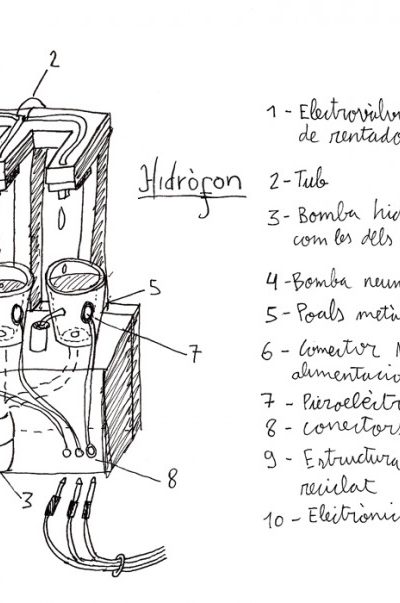 2
Hidròfon
5
7
8
3
1 - Electrovàlv
de rentado
2 - Tub
3 - Bomba hid
com les dels
4 - Bomba neum
5 - Poals metà
6 - Conector
alimentació
7 - Piezoelèctr
8 - Conectors
9 - Estructura
reciclat
10 - Electrònic